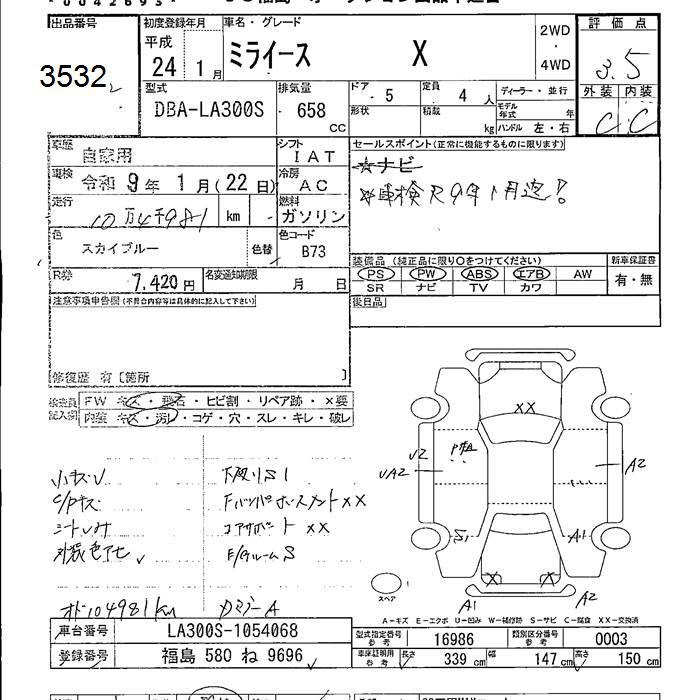 出品番号 初度登録年月 車名・グレード 2WD 評価点
3532 平成 ミライース X ・ 3.5
24 1月 4WD
型式 排気量 ドア 5 定員 4 人 ディーラー・並行 外装 内装
DBA-LA300S 658 cc 形状 積載 kg モデル年式 年 C C
ハンドル 左・右
車歴 自家用 シフト IAT セールスポイント(正常に機能するものに限ります)
車検 令和 9年 1月(22日) 冷房 AC ☆ナビ
走行 10万4千981 km 燃料 ガソリン ☆車検R9年1月迄!
色 スカイブルー 色替 色コード B73
装備品(純正品に限り○をつけてください) 新車保証書
R券 7,420円 名変通知期限 月 日 PS PW ABS エアB AW 有・無
SR ナビ TV カワ
注意事項申告欄(不具合内容等は具体的に記入して下さい) 後日品
修復歴 有〔箇所 〕
検査員記入欄 FW キズ・飛石・ヒビ割・リペア跡・×要
内装 キズ・汚れ・コゲ・穴・スレ・キレ・破レ
XX
U2
UA2 A2
小キズU 下廻りS1
C/Pキズ FバンパーホースメントXX
シートUみ コアサポートXX
外装色アセ E/GルームS
S1 A1
X X
スペア A1 A2
オド104981km カマラーA
A-キズ E-エクボ U-凹み W-補修跡 S-サビ C-腐食 XX-交換済
車台番号 LA300S-1054068 型式指定番号 参考 16986 類別区分番号 参考 0003
登録番号 福島 580 ね 9696 車庫証明用 参考 長さ 339 cm 幅 147 cm 高さ 150 cm